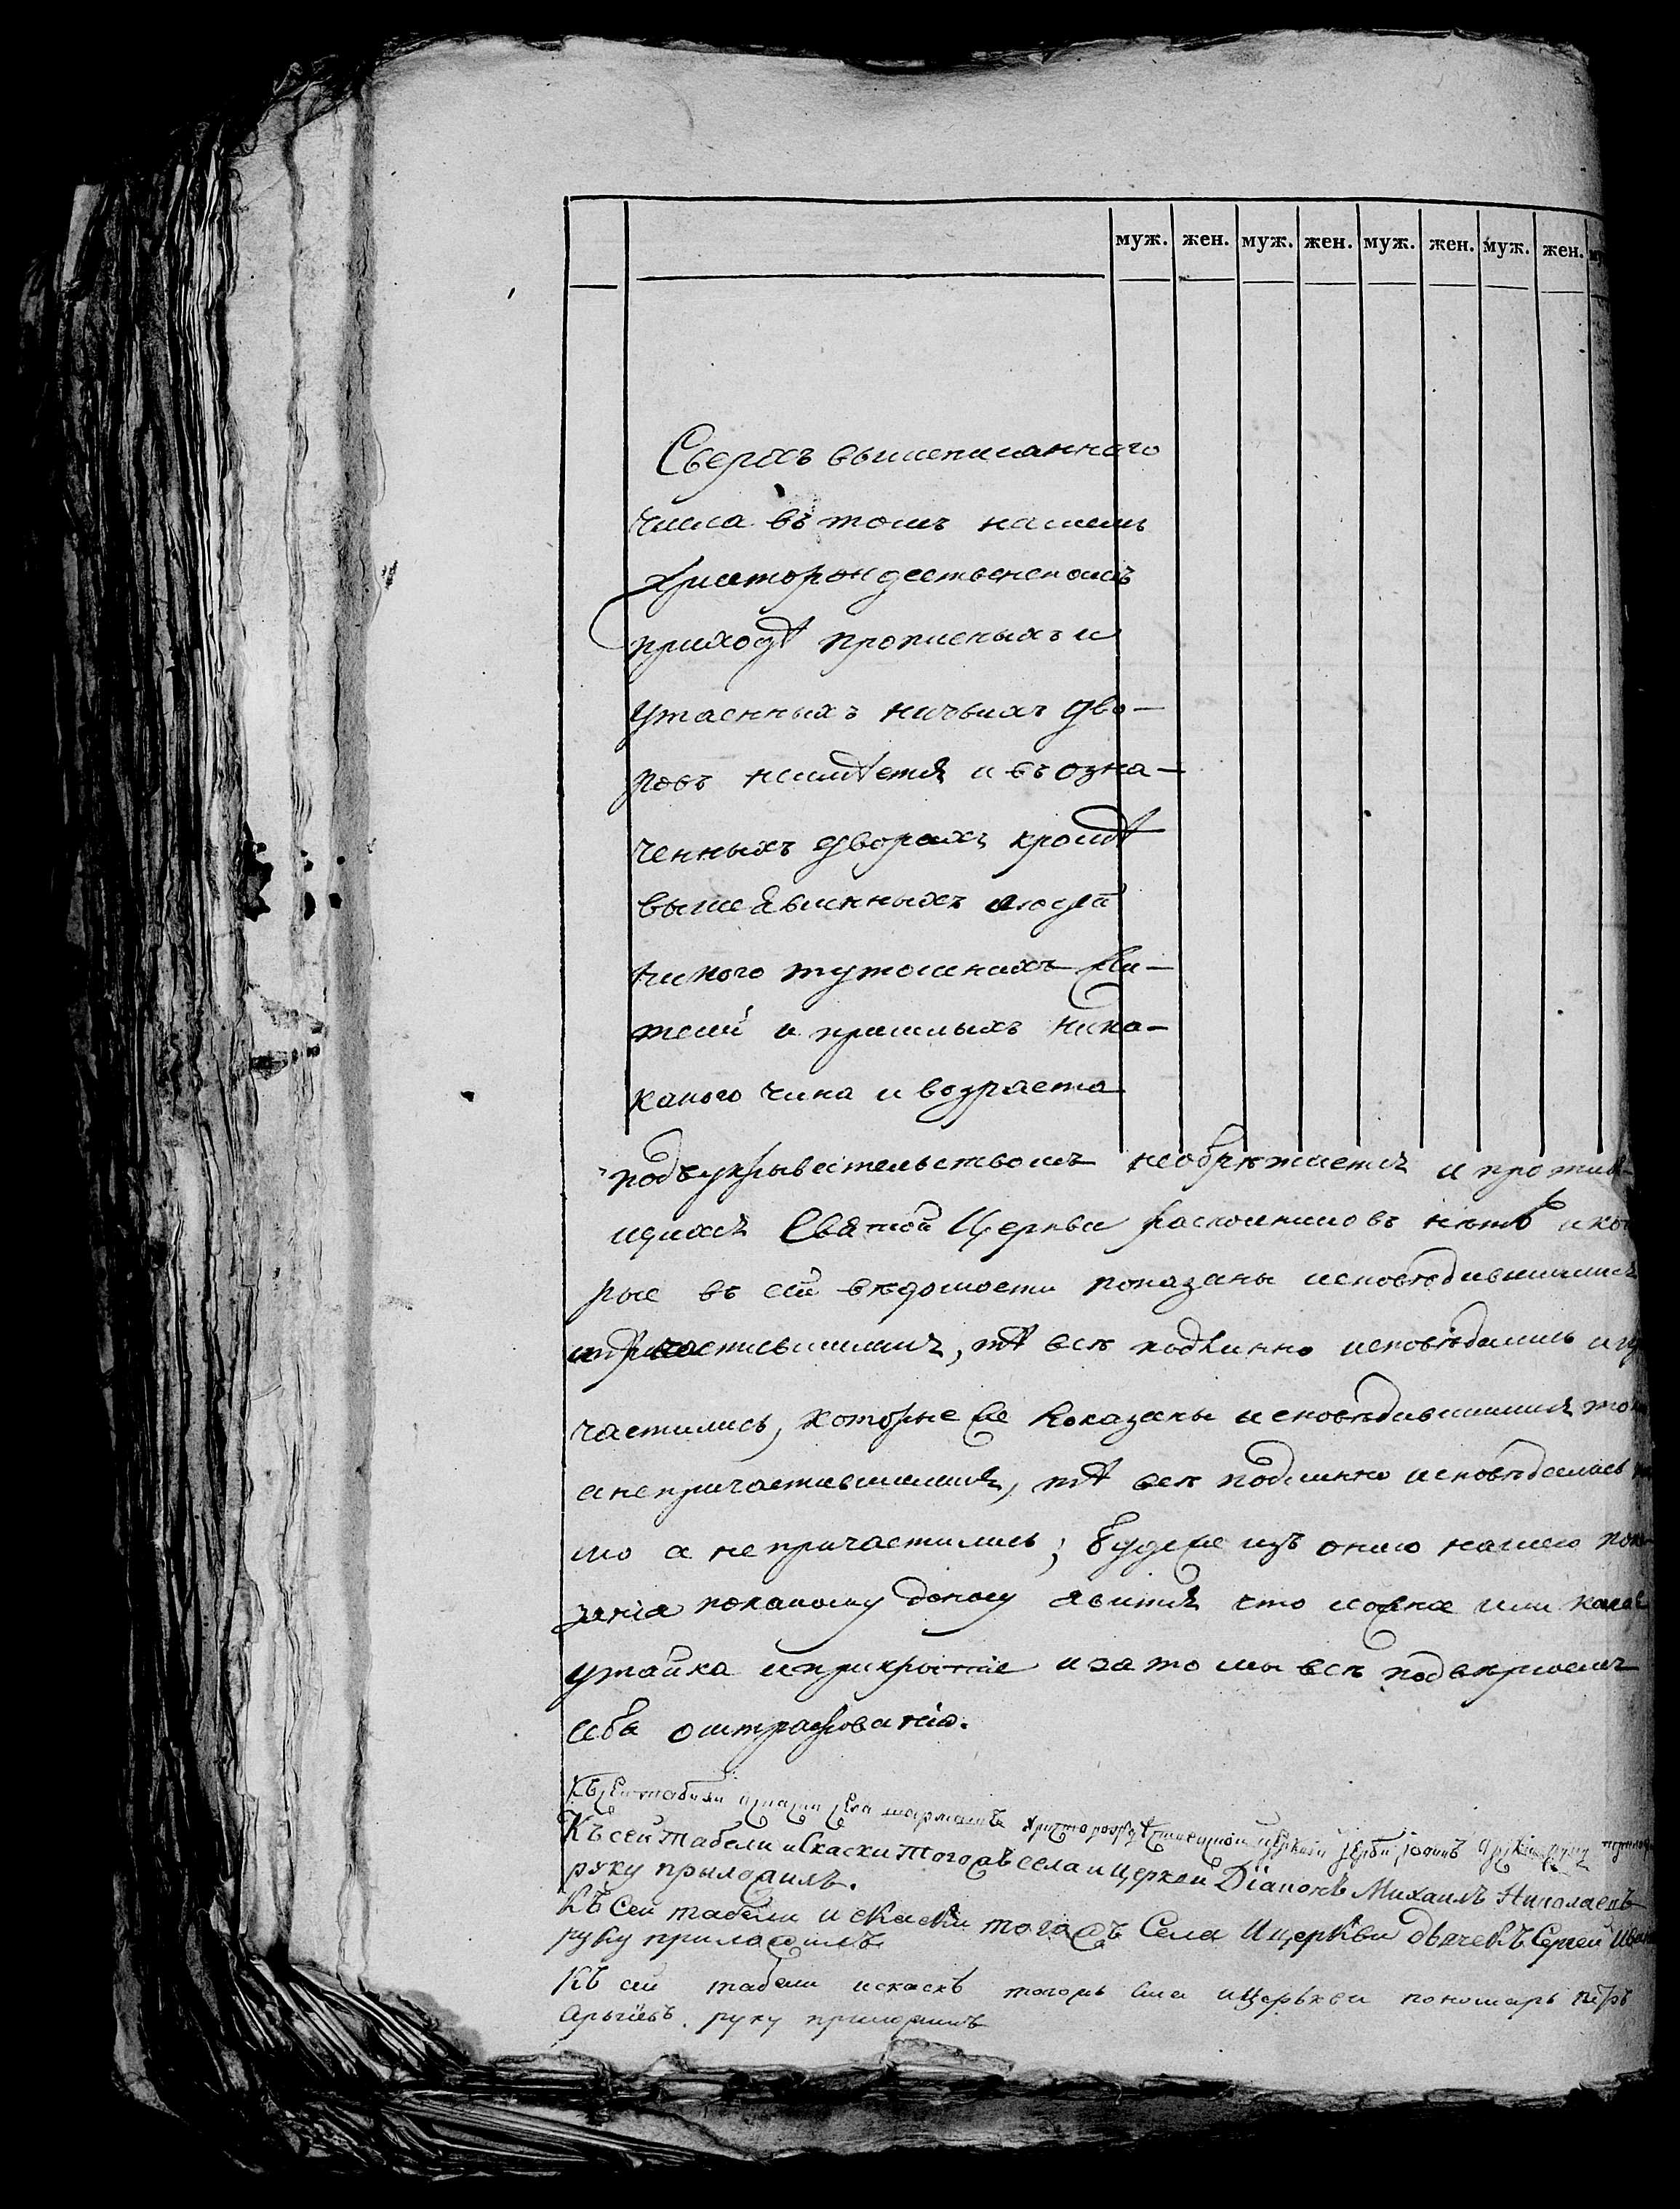 муж. жен. муж. жен. муж. жен. муж. жен.
Сверхъ вышеписаннаго
числа въ томъ нашемъ
христорождественскомъ
приходѣ прописныхъ и
утаенныхъ ничьихъ дво-
ровъ неимѣется и въ озна-
ченныхъ дворахъ кромѣ
вышеявленныхъ людей
никого тутошнихъ жи-
телей и пришлыхъ ника-
кового чина и возраста
подъукрывательствомъ необрѣтается и против-
щихся Святой Церкви раскольниковъ нѣтъ а кот
рые въ сей вѣдомости показаны исповѣдавшимися
и причастившимися, тѣ всѣ подлинно исповѣдались и п
частились, которые же показаны исповѣдавшимися то
а непричастившимися, тѣ всѣ подлинно исповѣдались
мо а непричастились; буде же изъ оного нашего пока
занія покакому доносу явится что ложное или какая
утайка и прикрытие и за то мы всѣ подвержемъ
себя оштрафованію.
Къ сей табели села христорождественской церкви руку
Къ сей табели и скаски того жъ села и церкви Дiаконъ Михаилъ Николаевъ
руку приложилъ.
Къ сей табели и скаски того жъ Села и церкви дьячекъ Сергей
руку приложилъ
Къ сей табели и скаскѣ того жъ села и церькви пономарь петръ
руку приложилъ